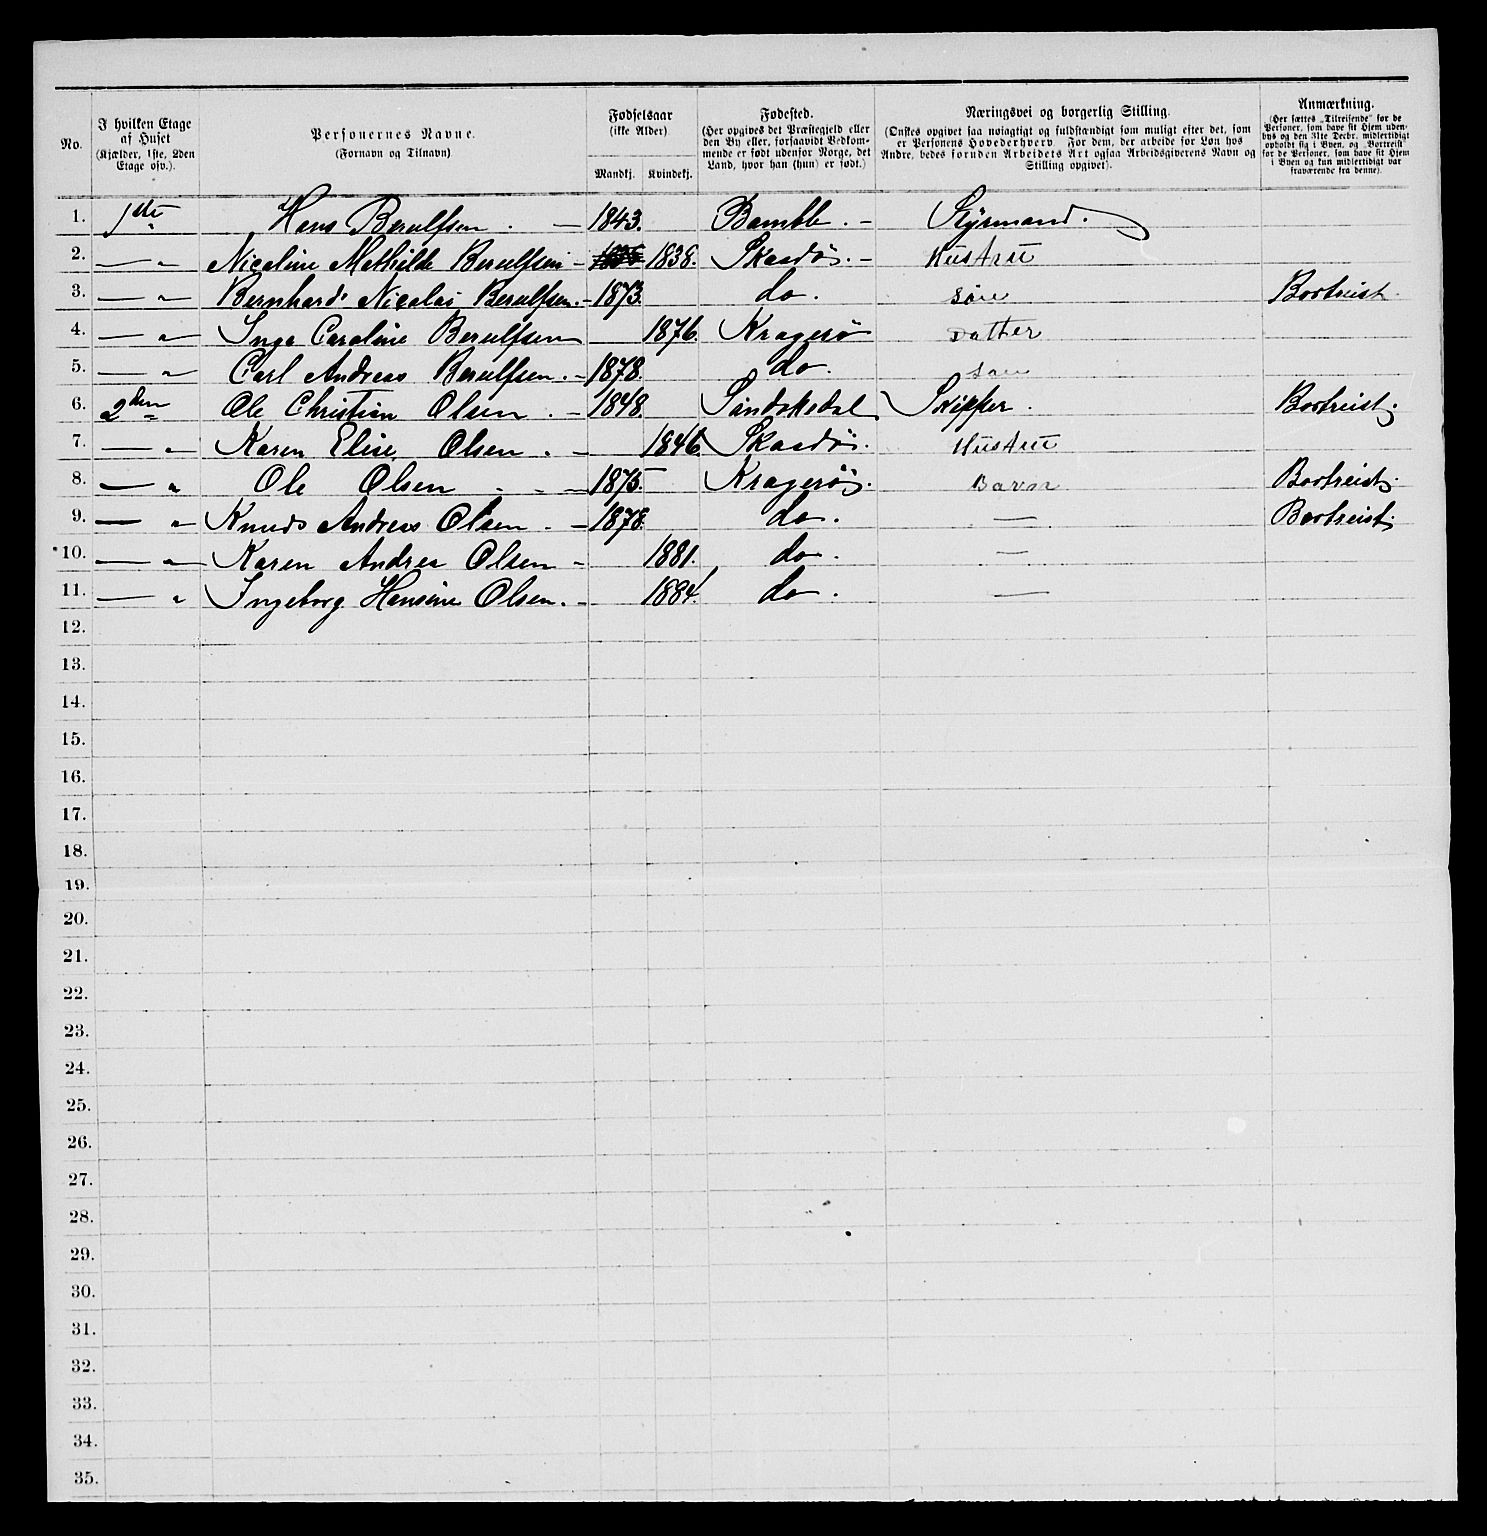 No.
I hvilken Etage af Huset (Kjælder, 1ste, 2den Etage osv.).
Personernes Navne. (Fornavn og Tilnavn)
Fødselsaar (ikke Alder) Mandkj. Kvindekj.
Fødested. (Her opgives det Præstegjeld eller den By eller, forsaavidt Vedkommende er født udenfor Norge, det Land, hvor han (hun) er født.)
Næringsvei og borgerlig Stilling. (Ønskes opgivet saa nøiagtigt og fuldstændigt som muligt efter det, som er Personens Hovederhverv. For dem, der arbeide for Løn hos Andre, bedes foruden Arbeidets Art ogsaa Arbeidsgiverens Navn og Stilling opgivet).
Anmærkning. (Her sættes „Tilreisende" for de Personer, som have sit Hjem udenbys og den 31te Decbr. midlertidigt opholdt sig i Byen, og „Bortreist" for de Personer, som have sit Hjem i Byen og kun midlertidigt var fraværende fra denne).
1. 1ste Hans Berulfsen. — 1843. Bamble. — Styrmand.
2. — " Nicoline Mathilde Berulfsen - 1838. Skaadø. — Hustru
3. — " Bernhard Nicolai Berulfsen. - 1873. do. Søn Bortreist.
4. — " Inga Caroline Berulfsen 1876. Kragerø Datter
5. — " Carl Andreas Berulfsen. - 1878. do. Søn
6. 2den Ole Christian Olsen. - 1848. Sandøkedal Skipper. Bortreist.
7. — " Karen Elise Olsen. - 1846 Skaadø. Hustru
8. — " Ole Olsen . - - 1875. Kragerø. Barn Bortreist.
9. — " Knud Andreas Olsen. - 1878. do. — Bortreist.
10. — " Karen Andrea Olsen - 1881. do. —
11. — " Ingeborg Hansine Olsen. - 1884. do. —
12.
13.
14.
15.
16.
17.
18.
19.
20.
21.
22.
23.
24.
25.
26.
27.
28.
29.
30.
31.
32.
33.
34.
35.